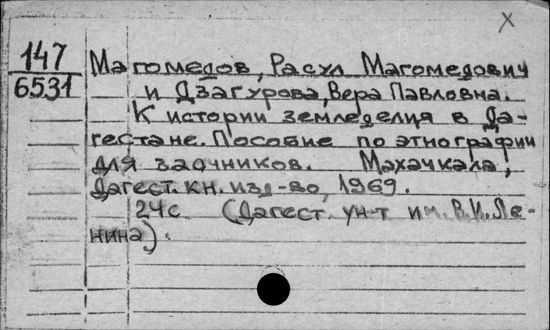 X
147
6531
Магомедов, Расул Магомедович
и Дзагурова, Вера Павловна.
К истории земледелия в Да-
гестане. Пособие по этнографии
для заочников. Махачкала,
Дагест. кн. изд-во, 1969.
24с. (Дагест. ун-т им. В.И.Ле-
нина).